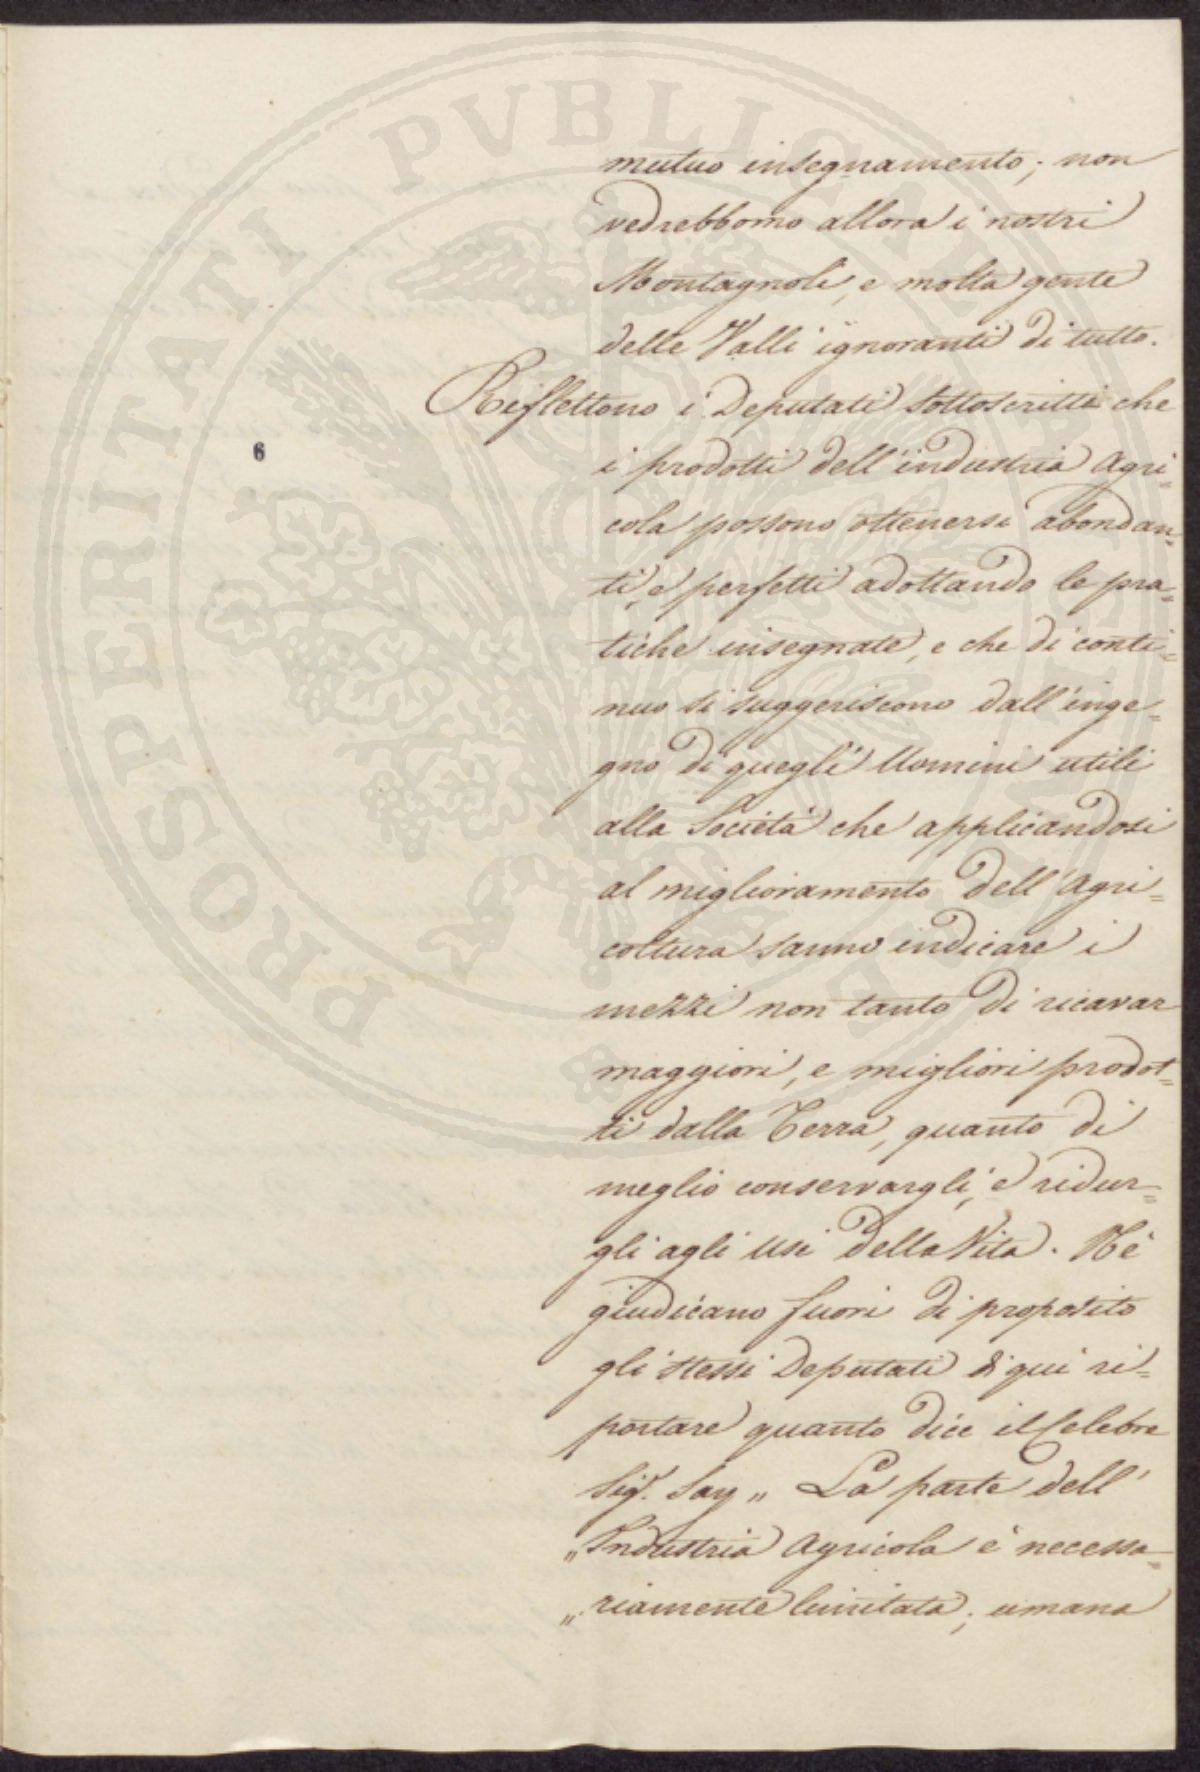 mutuo insegnamento; non
vedrebbomo allora i nostri
Montagnoli, e molta gente
delle Valli ignoranti di tutto.
Riflettono i Deputati sottoscritti che
6
i prodotti dell'industria Agri=
cola possono ottenersi abondan=
ti, e perfetti adottando le pra=
tiche insegnate, e che di conti=
nuo si suggeriscono dall'inge=
gno di quegli Uomini utili
alla Società che applicandosi
al miglioramento dell'Agri=
coltura sanno indicare i
mezzi non tanto di ricavar
maggiori, e migliori prodot=
ti dalla Terra, quanto di
meglio conservargli, e ridur=
gli agli usi della Vita. Nè
giudicano fuori di proposito
gli stessi Deputati di qui ri=
portare quanto dice il Celebre
Sigr. Say „ La parte dell'
„ Industria Agricola è necessa=
„ riamente limitata; umana
PROSPERITATI PVBLICAE AVGENDAE